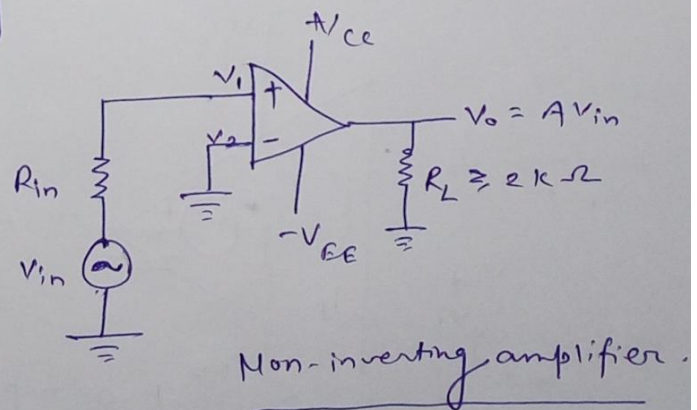 +VCC
V1
+
V2
-
Vo = A Vin
Rin
RL ≥ 2 K Ω
-VEE
Vin
Non-inverting amplifier.